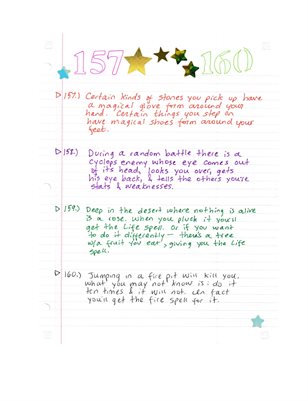 157 160
157.) Certain kinds of stones you pick up have
a magical glove form around your
hand. Certain things you step on
have magical shoes form around your
feet.
158.) During a random battle there is a
cyclops enemy whose eye comes out
of its head, looks you over, gets
his eye back, & tells the others you're
stats & weaknesses.
159.) Deep in the desert where nothing is alive
is a rose. When you pluck it you'll
get the Life spell. Or if you want
to do it differently — there's a tree
w/a fruit you eat, giving you the Life
spell.
160.) Jumping in a fire pit will kill you.
What you may not know is: do it
ten times & it will not. In fact
you'll get the fire spell for it.